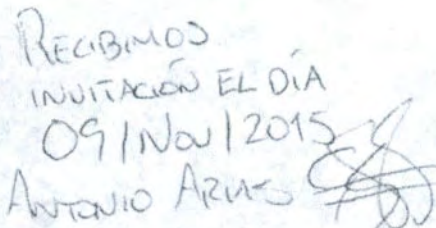 RECIBIMOS
INVITACIÓN EL DÍA
09/NOV/2015
ANTONIO